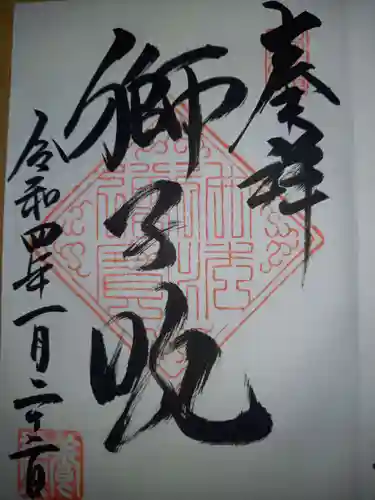 奏祥
獅子吼
令和四年一月二十二日